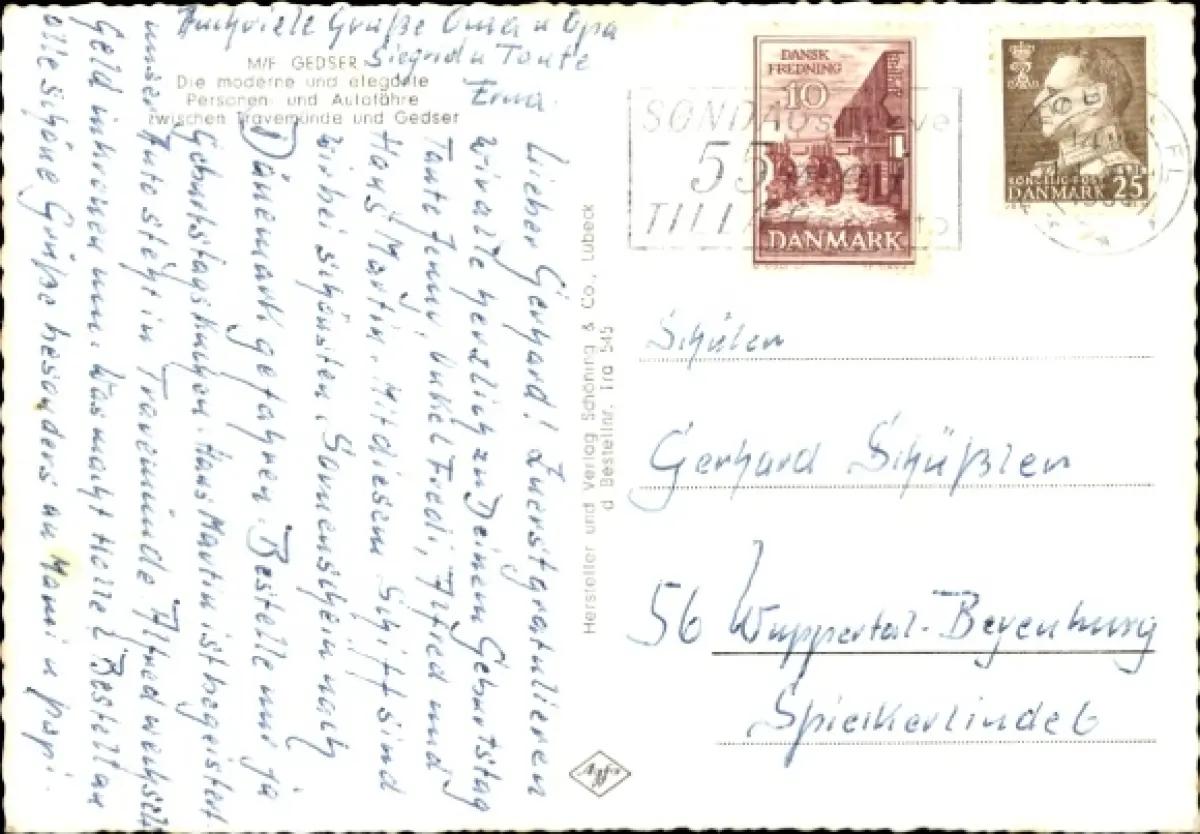 Auch viele Grüße Oma u Opa
Siegrid u Tante
Erna.
M/F GEDSER
Die moderne und elegante
Personen- und Autofähre
zwischen Travemünde und Gedser
Lieber Gerhard! Zuerst gratulieren
wir alle herzlich zu Deinem Geburtstag
Tante Jenni, Onkel Fredi, Alfred und
Hans Martin. Mit diesem Schiff sind
wir bei schönsten Sonnenschein nach
Dänemark gefahren. Bestelle nur ja
Geburtstagskuchen. Hans Martin ist begeistert
unser Auto steht in Travemünde. Alfred wechselt
Geld in kronen um. Was macht Holle? Bestell an
alle schöne Grüße besonders an Mami u papi.
Hersteller und Verlag Schöning & Co., Lübeck
d Bestellnr. Tra 545
SØNDAGS
55
TILL
DANSK
FREDNING
10
DANMARK
DANMARK 25
Schüler
Gerhard Schüßler
56 Wuppertal-Beyenburg
Spiekerlinde 6
Agfa